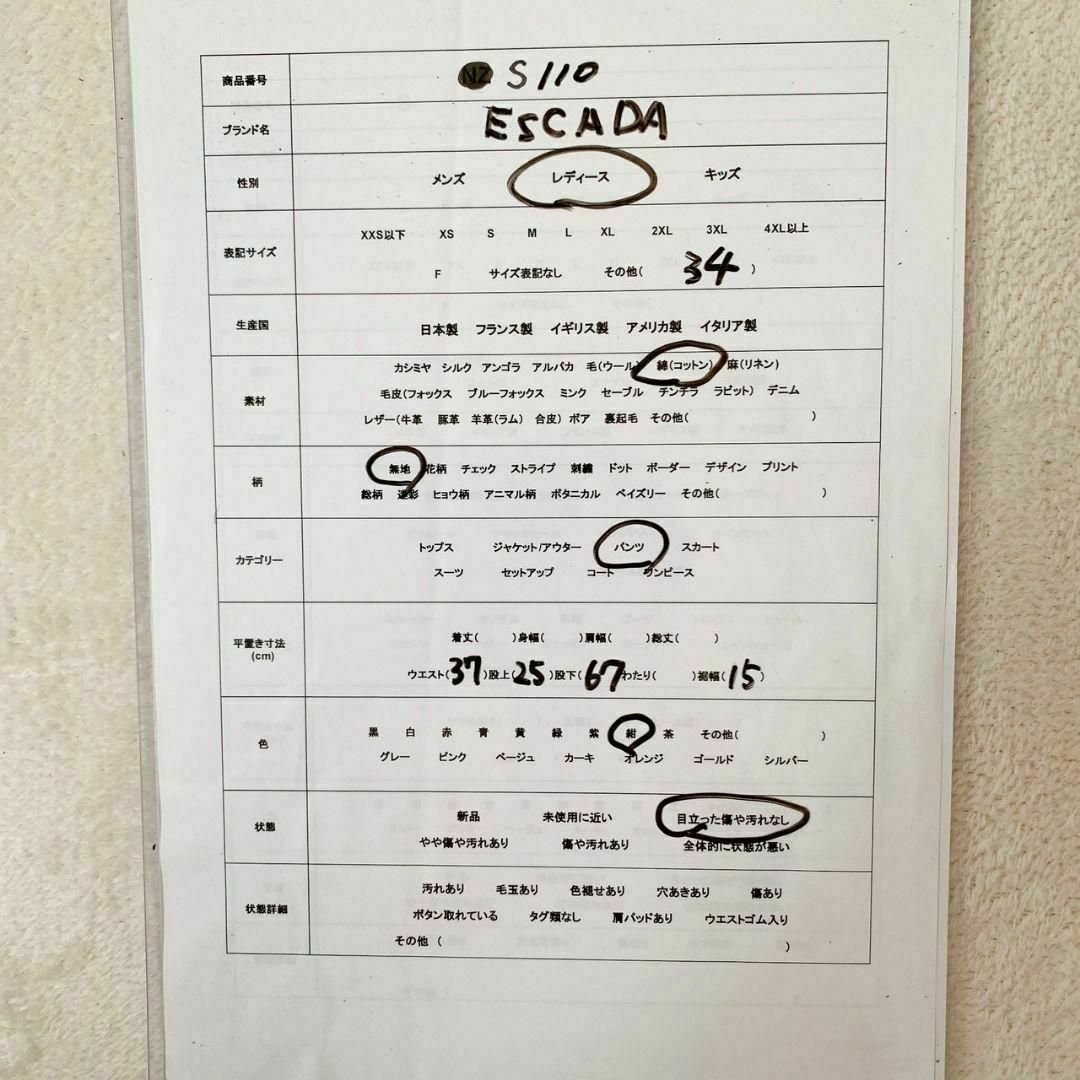 商品番号 NZ S110
ブランド名 ESCADA
性別 メンズ レディース キッズ
XXS以下 XS S M L XL 2XL 3XL 4XL以上
表記サイズ
F サイズ表記なし その他( 34 )
生産国 日本製 フランス製 イギリス製 アメリカ製 イタリア製
カシミヤ シルク アンゴラ アルパカ 毛(ウール) 綿(コットン) 麻(リネン)
素材 毛皮(フォックス ブルーフォックス ミンク セーブル チンチラ ラビット) デニム
レザー(牛革 豚革 羊革(ラム) 合皮) ボア 裏起毛 その他( )
柄 無地 花柄 チェック ストライプ 刺繍 ドット ボーダー デザイン プリント
総柄 迷彩 ヒョウ柄 アニマル柄 ボタニカル ペイズリー その他( )
カテゴリー トップス ジャケット/アウター パンツ スカート
スーツ セットアップ コート ワンピース
平置き寸法 着丈( )身幅( )肩幅( )総丈( )
(cm)
ウエスト(37)股上(25)股下(67わたり( )裾幅(15)
色 黒 白 赤 青 黄 緑 紫 紺 茶 その他( )
グレー ピンク ベージュ カーキ オレンジ ゴールド シルバー
状態 新品 未使用に近い 目立った傷や汚れなし
やや傷や汚れあり 傷や汚れあり 全体的に状態が悪い
状態詳細 汚れあり 毛玉あり 色褪せあり 穴あきあり 傷あり
ボタン取れている タグ類なし 肩パッドあり ウエストゴム入り
その他 ( )